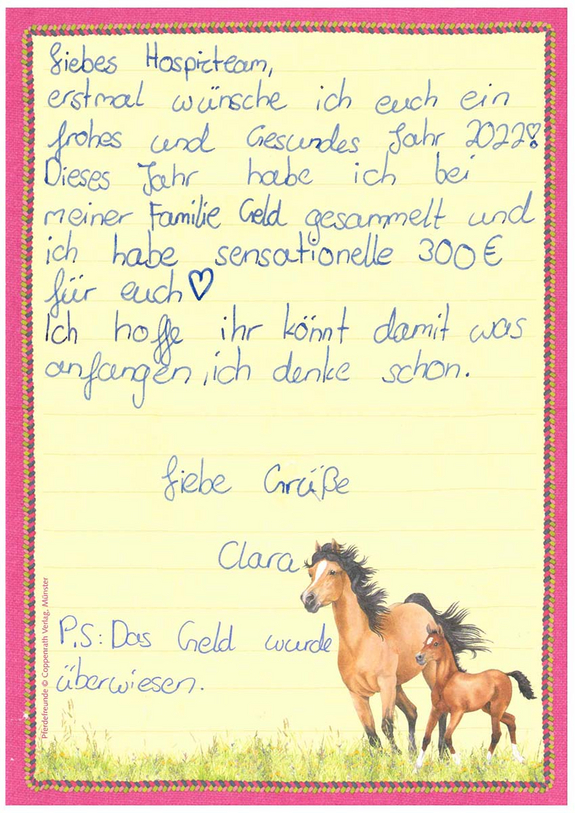 Liebes Hospizteam,
erstmal wünsche ich euch ein
frohes und Gesundes Jahr 2022!
Dieses Jahr habe ich bei
meiner Familie Geld gesammelt und
ich habe sensationelle 300€
für euch♡
Ich hoffe ihr könnt damit was
anfangen, ich denke schon.
Liebe Grüße
Clara
P.S: Das Geld wurde
überwiesen.
Pferdefreunde © Coppenrath Verlag, Münster